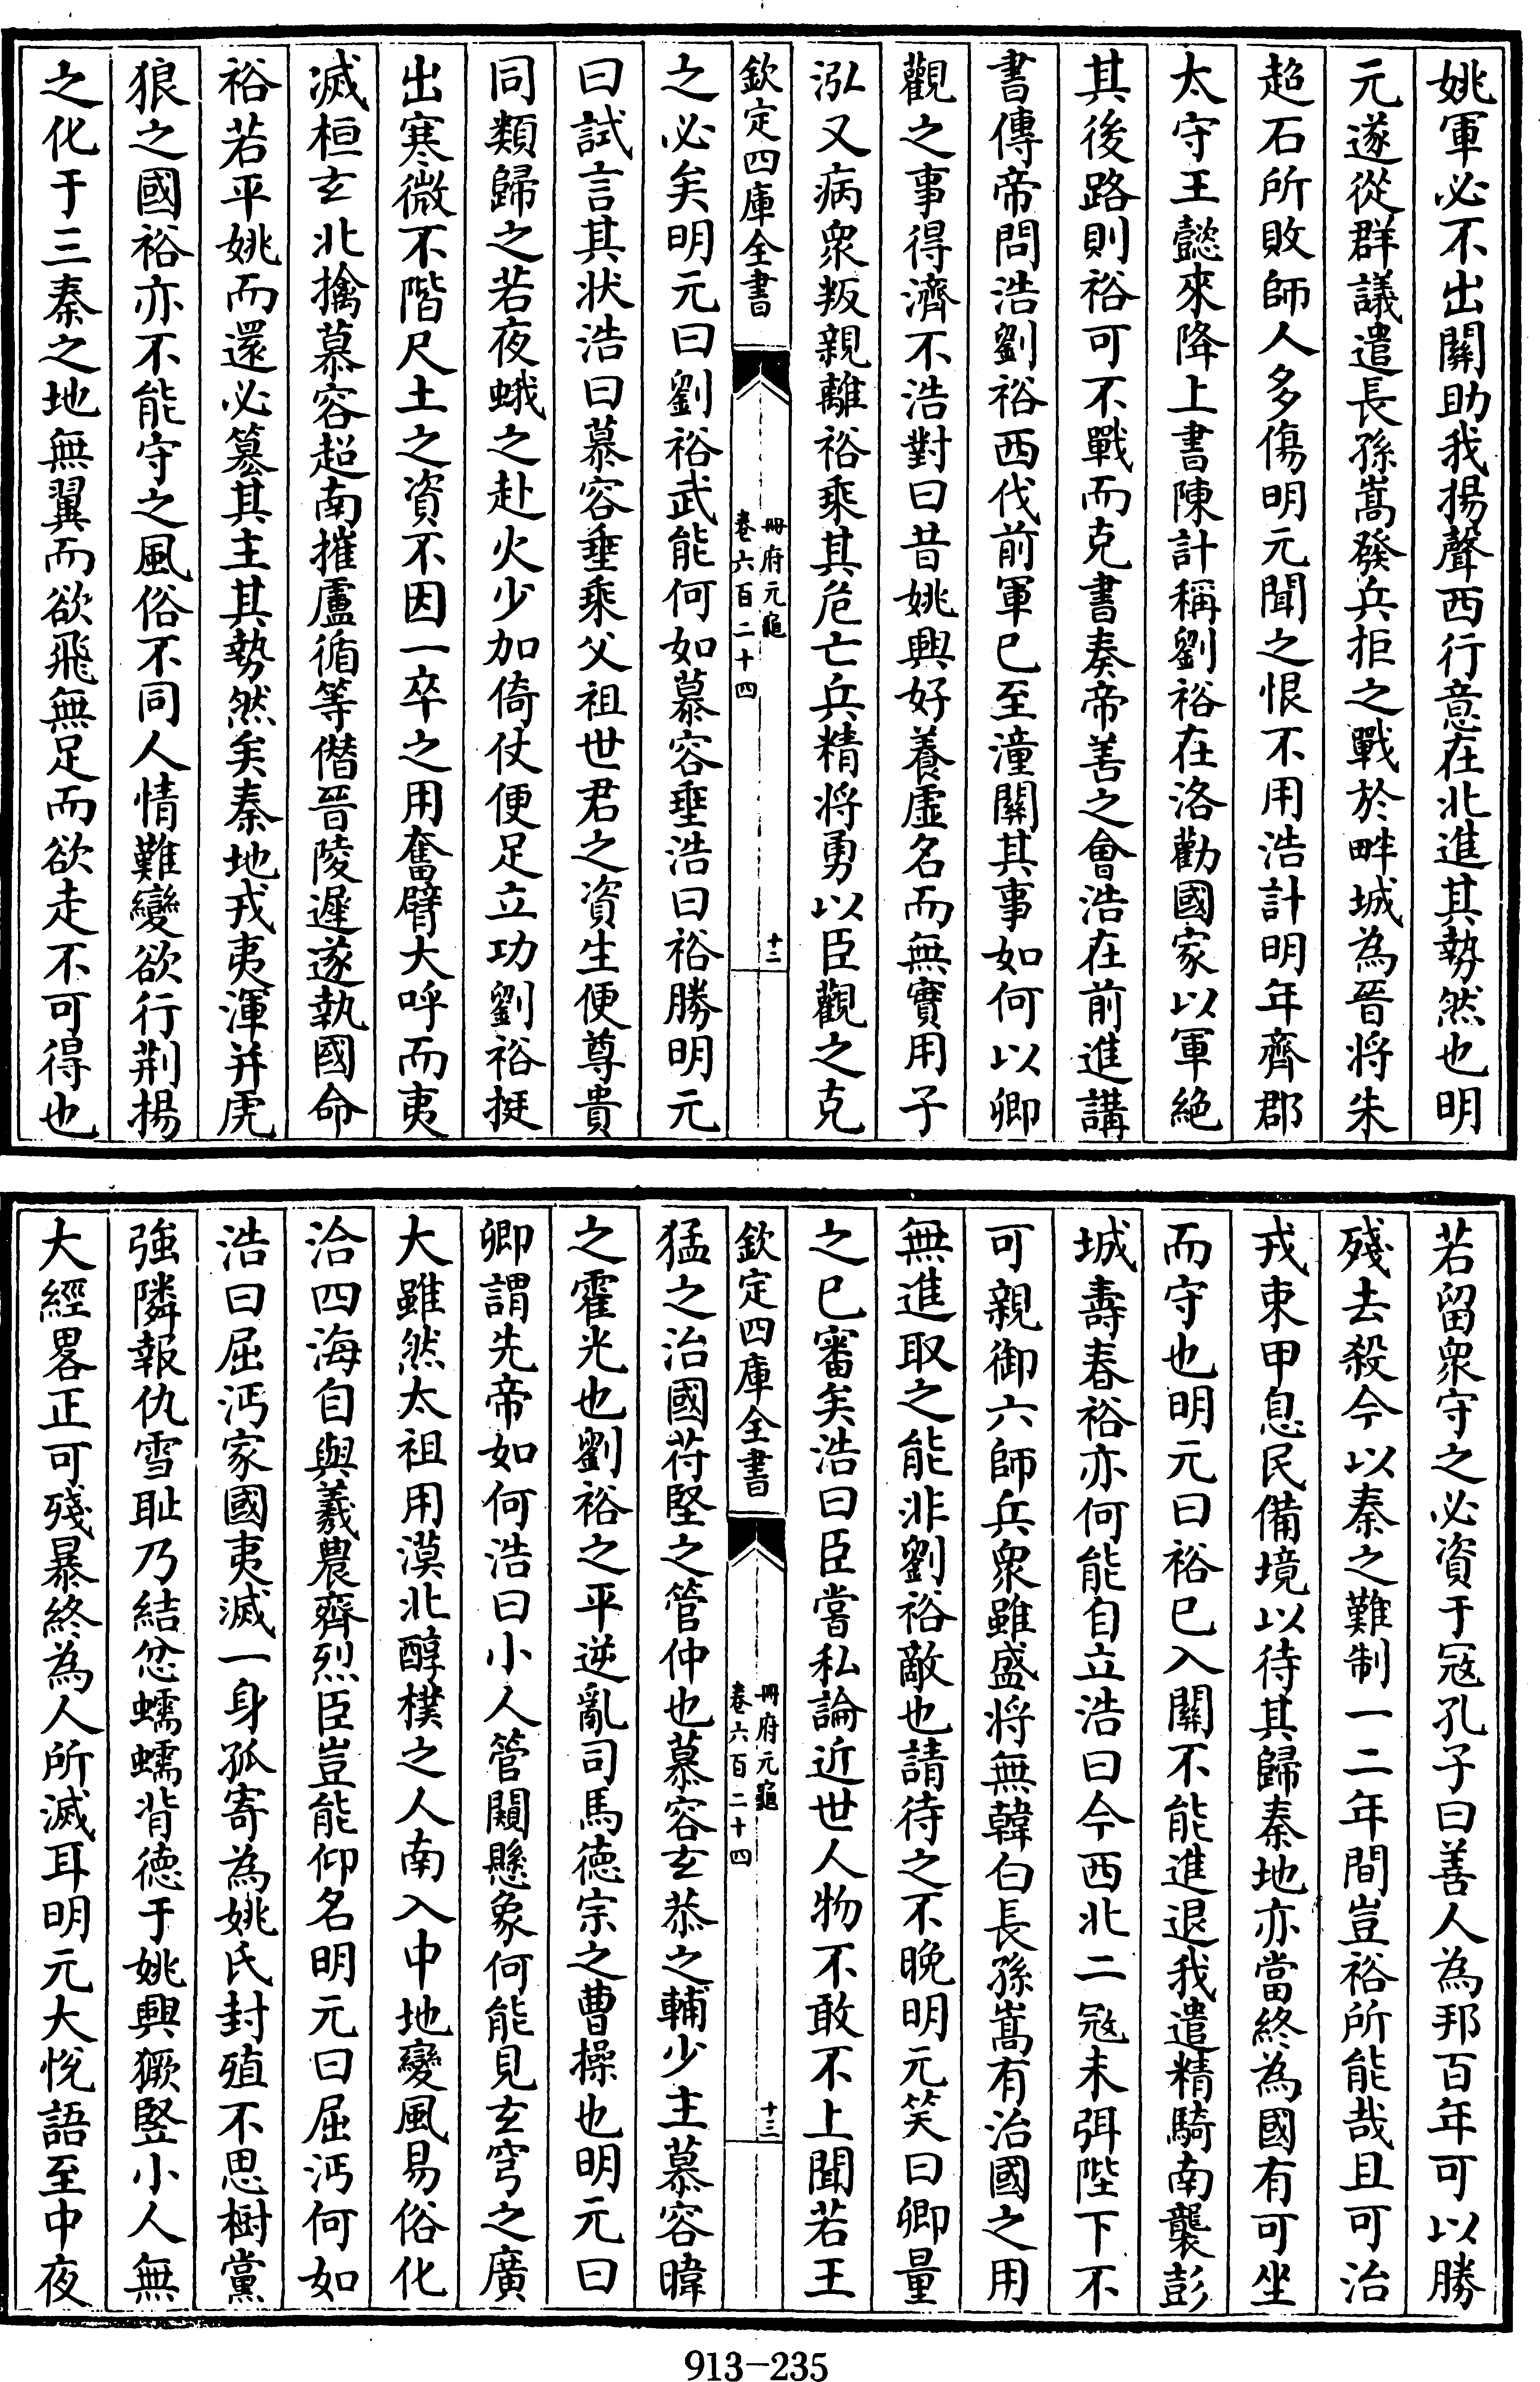 姚軍必不出關助我揚聲西行意在北進其勢然也明
元遂從群議遣長孫嵩發兵拒之戰於畔城為晉將朱
超石所敗師人多傷明元聞之恨不用浩計明年齊郡
太守王懿來降上書陳計稱劉裕在洛勸國家以軍絶
其後路則裕可不戰而克書奏帝善之會浩在前進講
書傳帝問浩劉裕西伐前軍已至潼關其事如何以卿
觀之事得濟不浩對曰昔姚興好養虛名而無實用子
泓又病衆叛親離裕乘其危亡兵精將勇以臣觀之克
欽定四庫全書
冊府元龜
卷六百二十四
十二
之必矣明元曰劉裕武能何如慕容垂浩曰裕勝明元
曰試言其狀浩曰慕容垂乘父祖世君之資生便尊貴
同類歸之若夜蛾之赴火少加倚仗便足立功劉裕挺
出寒微不階尺土之資不因一卒之用奮臂大呼而夷
滅桓玄北擒慕容超南摧盧循等僭晉陵遲遂執國命
裕若平姚而還必簒其主其勢然矣秦地戎夷渾并虎
狼之國裕亦不能守之風俗不同人情難變欲行荆揚
之化于三秦之地無翼而欲飛無足而欲走不可得也
若留衆守之必資于冦孔子曰善人為邦百年可以勝
殘去殺今以秦之難制一二年間豈裕所能哉且可治
戎束甲息民備境以待其歸秦地亦當終為國有可坐
而守也明元曰裕已入關不能進退我遣精騎南襲彭
城壽春裕亦何能自立浩曰今西北二冦未弭陛下不
可親御六師兵衆雖盛將無韓白長孫嵩有治國之用
無進取之能非劉裕敵也請待之不晚明元笑曰卿量
之已審矣浩曰臣嘗私論近世人物不敢不上聞若王
欽定四庫全書
冊府元龜
卷六百二十四
十三
猛之治國苻堅之管仲也慕容玄恭之輔少主慕容暐
之霍光也劉裕之平逆亂司馬德宗之曹操也明元曰
卿謂先帝如何浩曰小人管闚懸象何能見玄穹之廣
大雖然太祖用漠北醇樸之人南入中地變風易俗化
洽四海自與羲農齊烈臣豈能仰名明元曰屈沔何如
浩曰屈沔家國夷滅一身孤寄為姚氏封殖不思樹黨
強隣報仇雪耻乃結忿蠕蠕背德于姚興獗竪小人無
大經畧正可殘暴終為人所滅耳明元大悅語至中夜
913-235